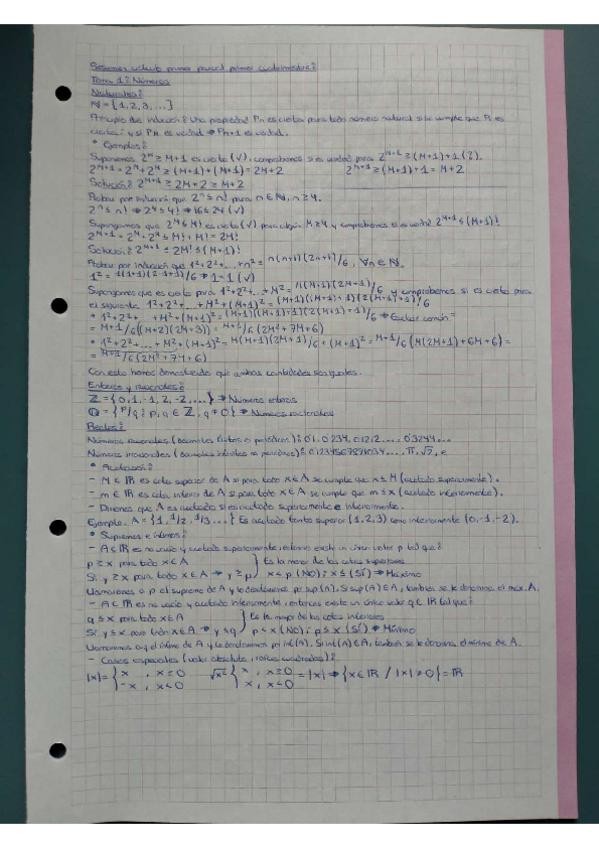 Resumen cálculo primer parcial primer cuatrimestre:
Tema 1: Números
Naturales:
ℕ = {1,2,3,...}
Principio de inducción: Una propiedad Pn es cierta para todo número natural si se cumple que P1 es
cierta, y si PM es verdad ⇒ PM+1 es verdad.
• Ejemplos:
Suponemos 2^M ≥ M+1 es cierta (√), comprobamos si es verdad para 2^M+1 ≥ (M+1)+1 (?).
2^M+1 = 2^M + 2^M ≥ (M+1) + (M+1) = 2M+2 2^M+1 ≥ (M+1)+1 = M+2
Solución: 2^M+1 ≥ 2M+2 ≥ M+2
Probar por inducción que 2^n ≤ n! para n ∈ ℕ, n ≥ 4.
2^n ≤ n! ⇒ 2^4 ≤ 4! ⇒ 16 ≤ 24 (√)
Supongamos que 2^M ≤ M! es cierta (√) para algún M ≥ 4 y comprobamos si es verdad 2^M+1 ≤ (M+1)!
2^M+1 = 2^M + 2^M ≤ M! + M! = 2M!
Solución: 2^M+1 ≤ 2M! ≤ (M+1)!
Probar por inducción que 1²+2²+...+n² = n(n+1)(2n+1)/6, ∀n ∈ ℕ.
1² = 1(1+1)(2·1+1)/6 ⇒ 1=1 (√)
Supongamos que es cierto para 1²+2²+...+M² = M(M+1)(2M+1)/6 y comprobamos si es cierto para
el siguiente 1²+2²+...+M²+(M+1)² = (M+1)((M+1)+1)(2(M+1)+1)/6
• 1²+2²+...+M²+(M+1)² = (M+1)((M+1)+1)(2(M+1)+1)/6 ⇒ común =
= M+1/6((M+2)(2M+3)) = M+1/6 (2M²+7M+6)
• 1²+2²+...+M²+(M+1)² = M(M+1)(2M+1)/6 + (M+1)² = M+1/6 (M(2M+1)+6M+6) =
= M+1/6 (2M²+7M+6)
Con esto hemos demostrado que ambas cantidades son iguales.
Enteros y racionales:
ℤ = {0,1,-1,2,-2,...} ⇒ Números enteros
ℚ = {p/q : p,q ∈ ℤ, q ≠ 0} ⇒ Números racionales
Reales:
Números racionales (decimales finitos o periódicos):
Números irracionales (decimales infinitos no periódicos): π, √2, e
• Acotación:
- M ∈ ℝ es cota superior de A si para todo x ∈ A se cumple que x ≤ M (acotado superiormente).
- m ∈ ℝ es cota inferior de A si para todo x ∈ A se cumple que m ≤ x (acotado inferiormente).
- Diremos que A es acotado si es acotado superiormente e inferiormente.
Ejemplo. A = {1, 1/2, 1/3...} Es acotado tanto superior (1,2,3) como inferiormente (0,-1,-2).
• Supremos e ínfimos:
- A ⊂ ℝ es no vacío y acotado superiormente, entonces existe un único valor p tal que:
p ≥ x para todo x ∈ A } Es la menor de las cotas superiores
Si y ≥ x para todo x ∈ A ⇒ y ≥ p x < p (NO); x ≤ (SÍ) ⇒ Máximo
Llamaremos a p el supremo de A y lo denotaremos por sup(A). Si sup(A) ∈ A, también se le denomina el máx. A.
- A ⊂ ℝ es no vacío y acotado inferiormente, entonces existe un único valor q ∈ ℝ tal que:
q ≤ x para todo x ∈ A } Es la mayor de las cotas inferiores
Si y ≤ x para todo x ∈ A ⇒ y ≤ q p < x (NO); p ≤ x (SÍ) ⇒ Mínimo
Llamaremos a q el ínfimo de A y lo denotaremos por inf(A). Si inf(A) ∈ A, también se le denomina el mínimo de A.
- Casos especiales (valor absoluto, raíces cuadradas):
|x| = { x , x ≥ 0 √x² { x , x ≥ 0 = |x| ⇒ {x ∈ ℝ / |x| ≠ 0} = ℝ
-x , x < 0 x , x < 0